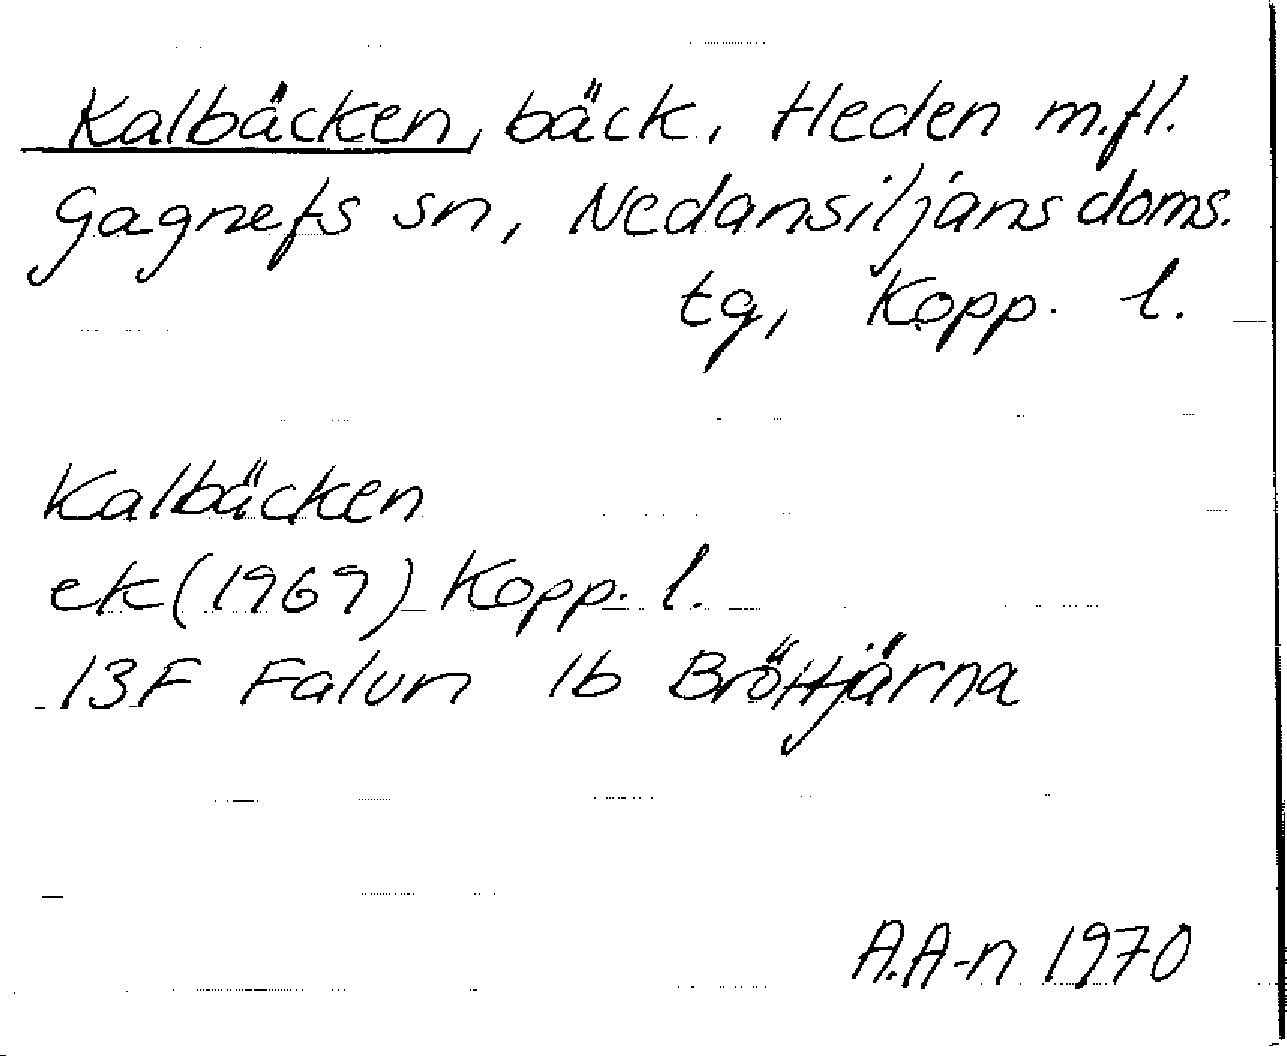 Kalbäcken, bäck, Heden m.fl.
Gagnefs sn, Nedansiljans doms.
tg, Kopp. l.
Kalbäcken
ek (1969) Kopp. l.
13F Falun 1b Bröttjärna
A.A-n 1970